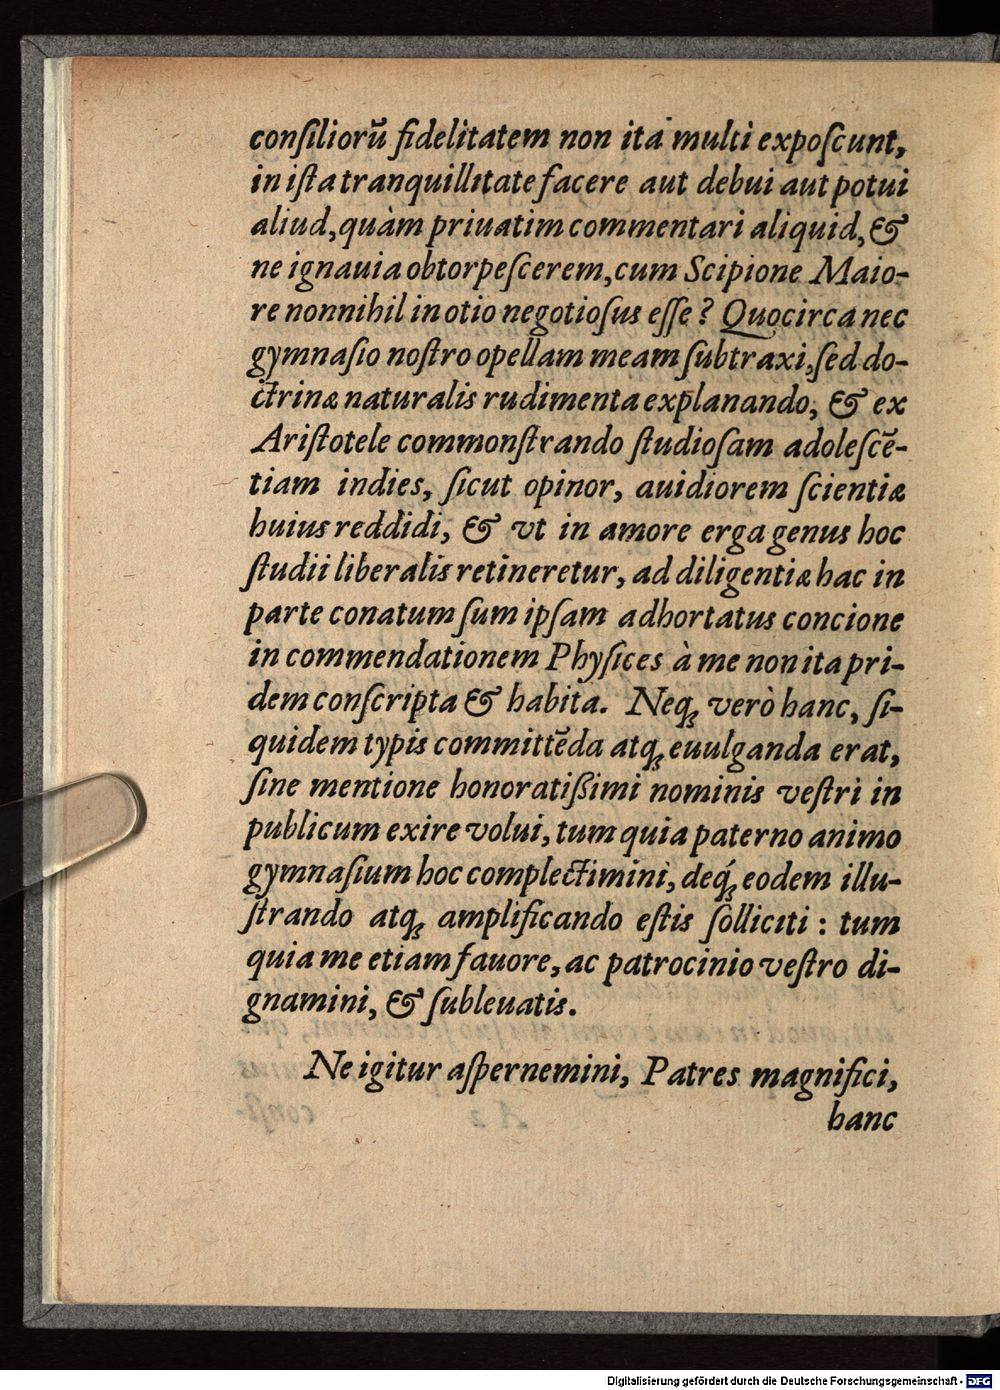 conſiliorū fidelitatem non ita multi expoſcunt,
in iſta tranquillitate facere aut debui aut potui
aliud, quàm priuatim commentari aliquid, &
ne ignauia obtorpeſcerem, cum Scipione Maio-
re nonnihil in otio negotioſus eſſe? Quocirca nec
gymnaſio noſtro opellam meam ſubtraxi, ſed do-
ctrinæ naturalis rudimenta explanando, & ex
Ariſtotele commonſtrando ſtudioſam adoleſcē-
tiam indies, ſicut opinor, auidiorem ſcientiæ
huius reddidi, & vt in amore erga genus hoc
ſtudii liberalis retineretur, ad diligentiæ hac in
parte conatum ſum ipſam adhortatus concione
in commendationem Phyſices à me non ita pri-
dem conſcripta & habita. Neq; verò hanc, ſi-
quidem typis committēda atq; euulganda erat,
ſine mentione honoratißimi nominis veſtri in
publicum exire volui, tum quia paterno animo
gymnaſium hoc complectimini, deq́; eodem illu-
ſtrando atq; amplificando eſtis ſolliciti : tum
quia me etiam fauore, ac patrocinio veſtro di-
gnamini, & ſubleuatis.
Ne igitur aſpernemini, Patres magnifici,
hanc
Digitalisierung gefördert durch die Deutsche Forschungsgemeinschaft - DFG